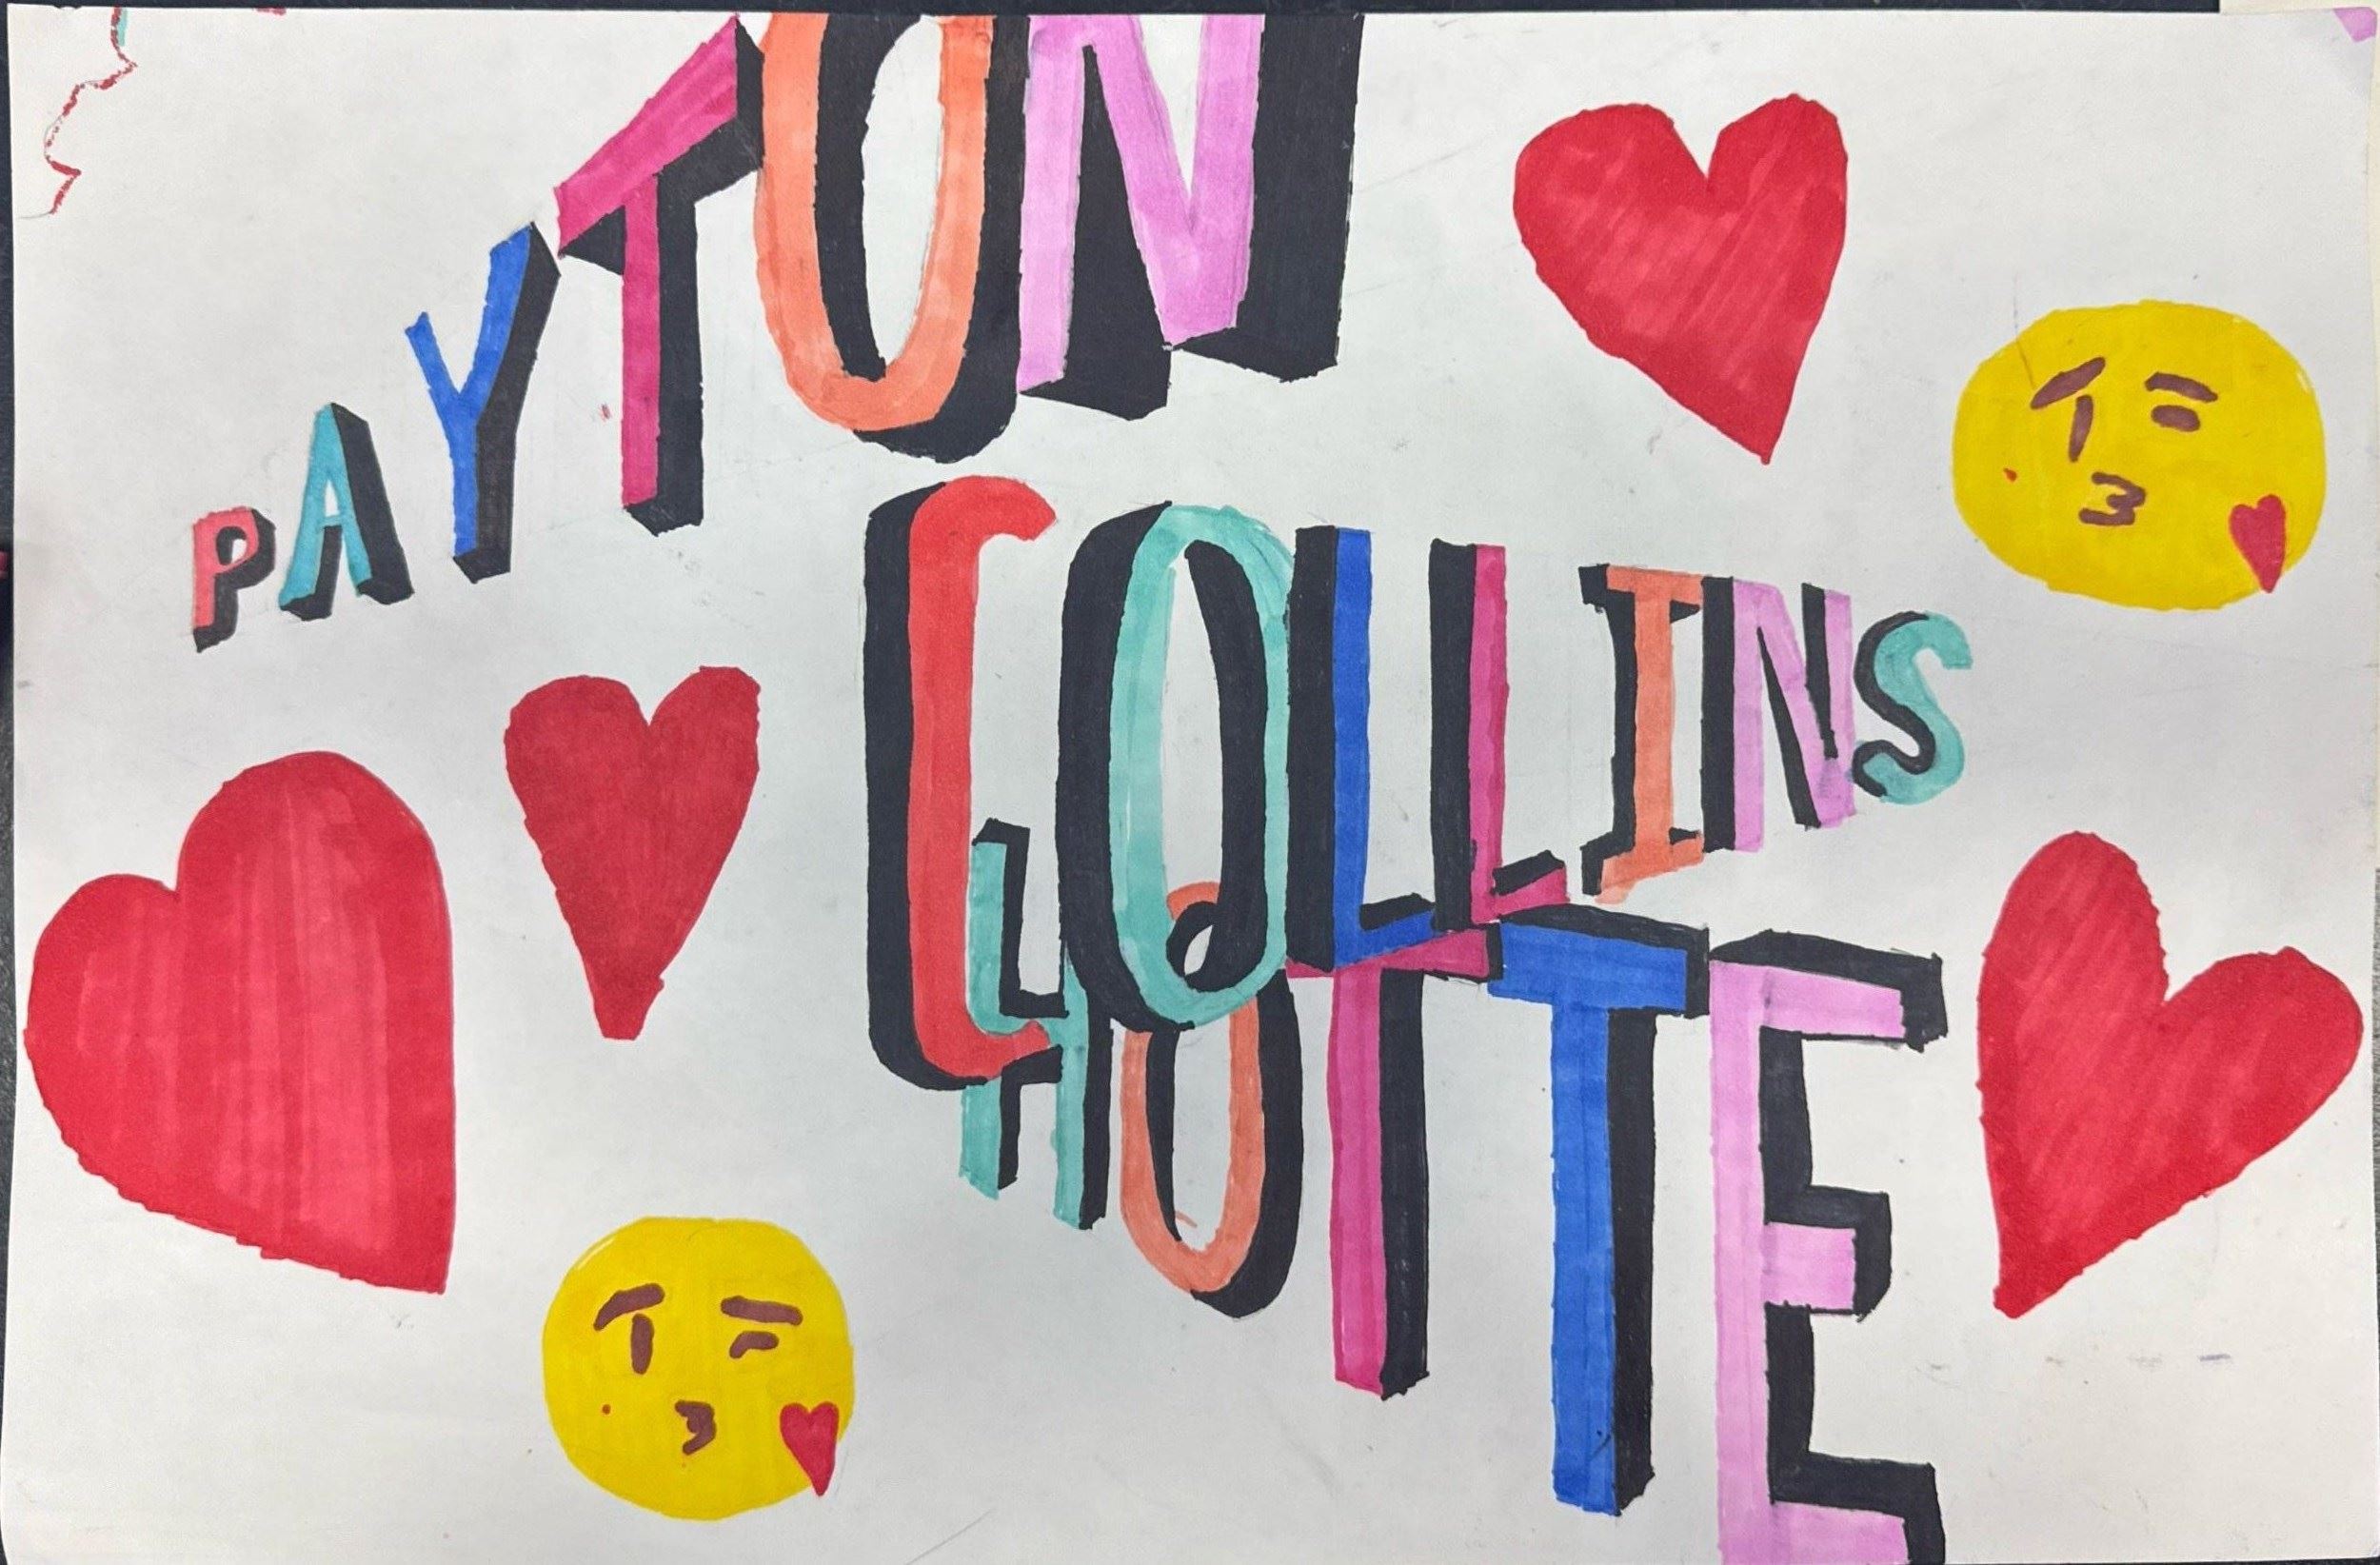 PAYTON
COLLINS
HOTTE